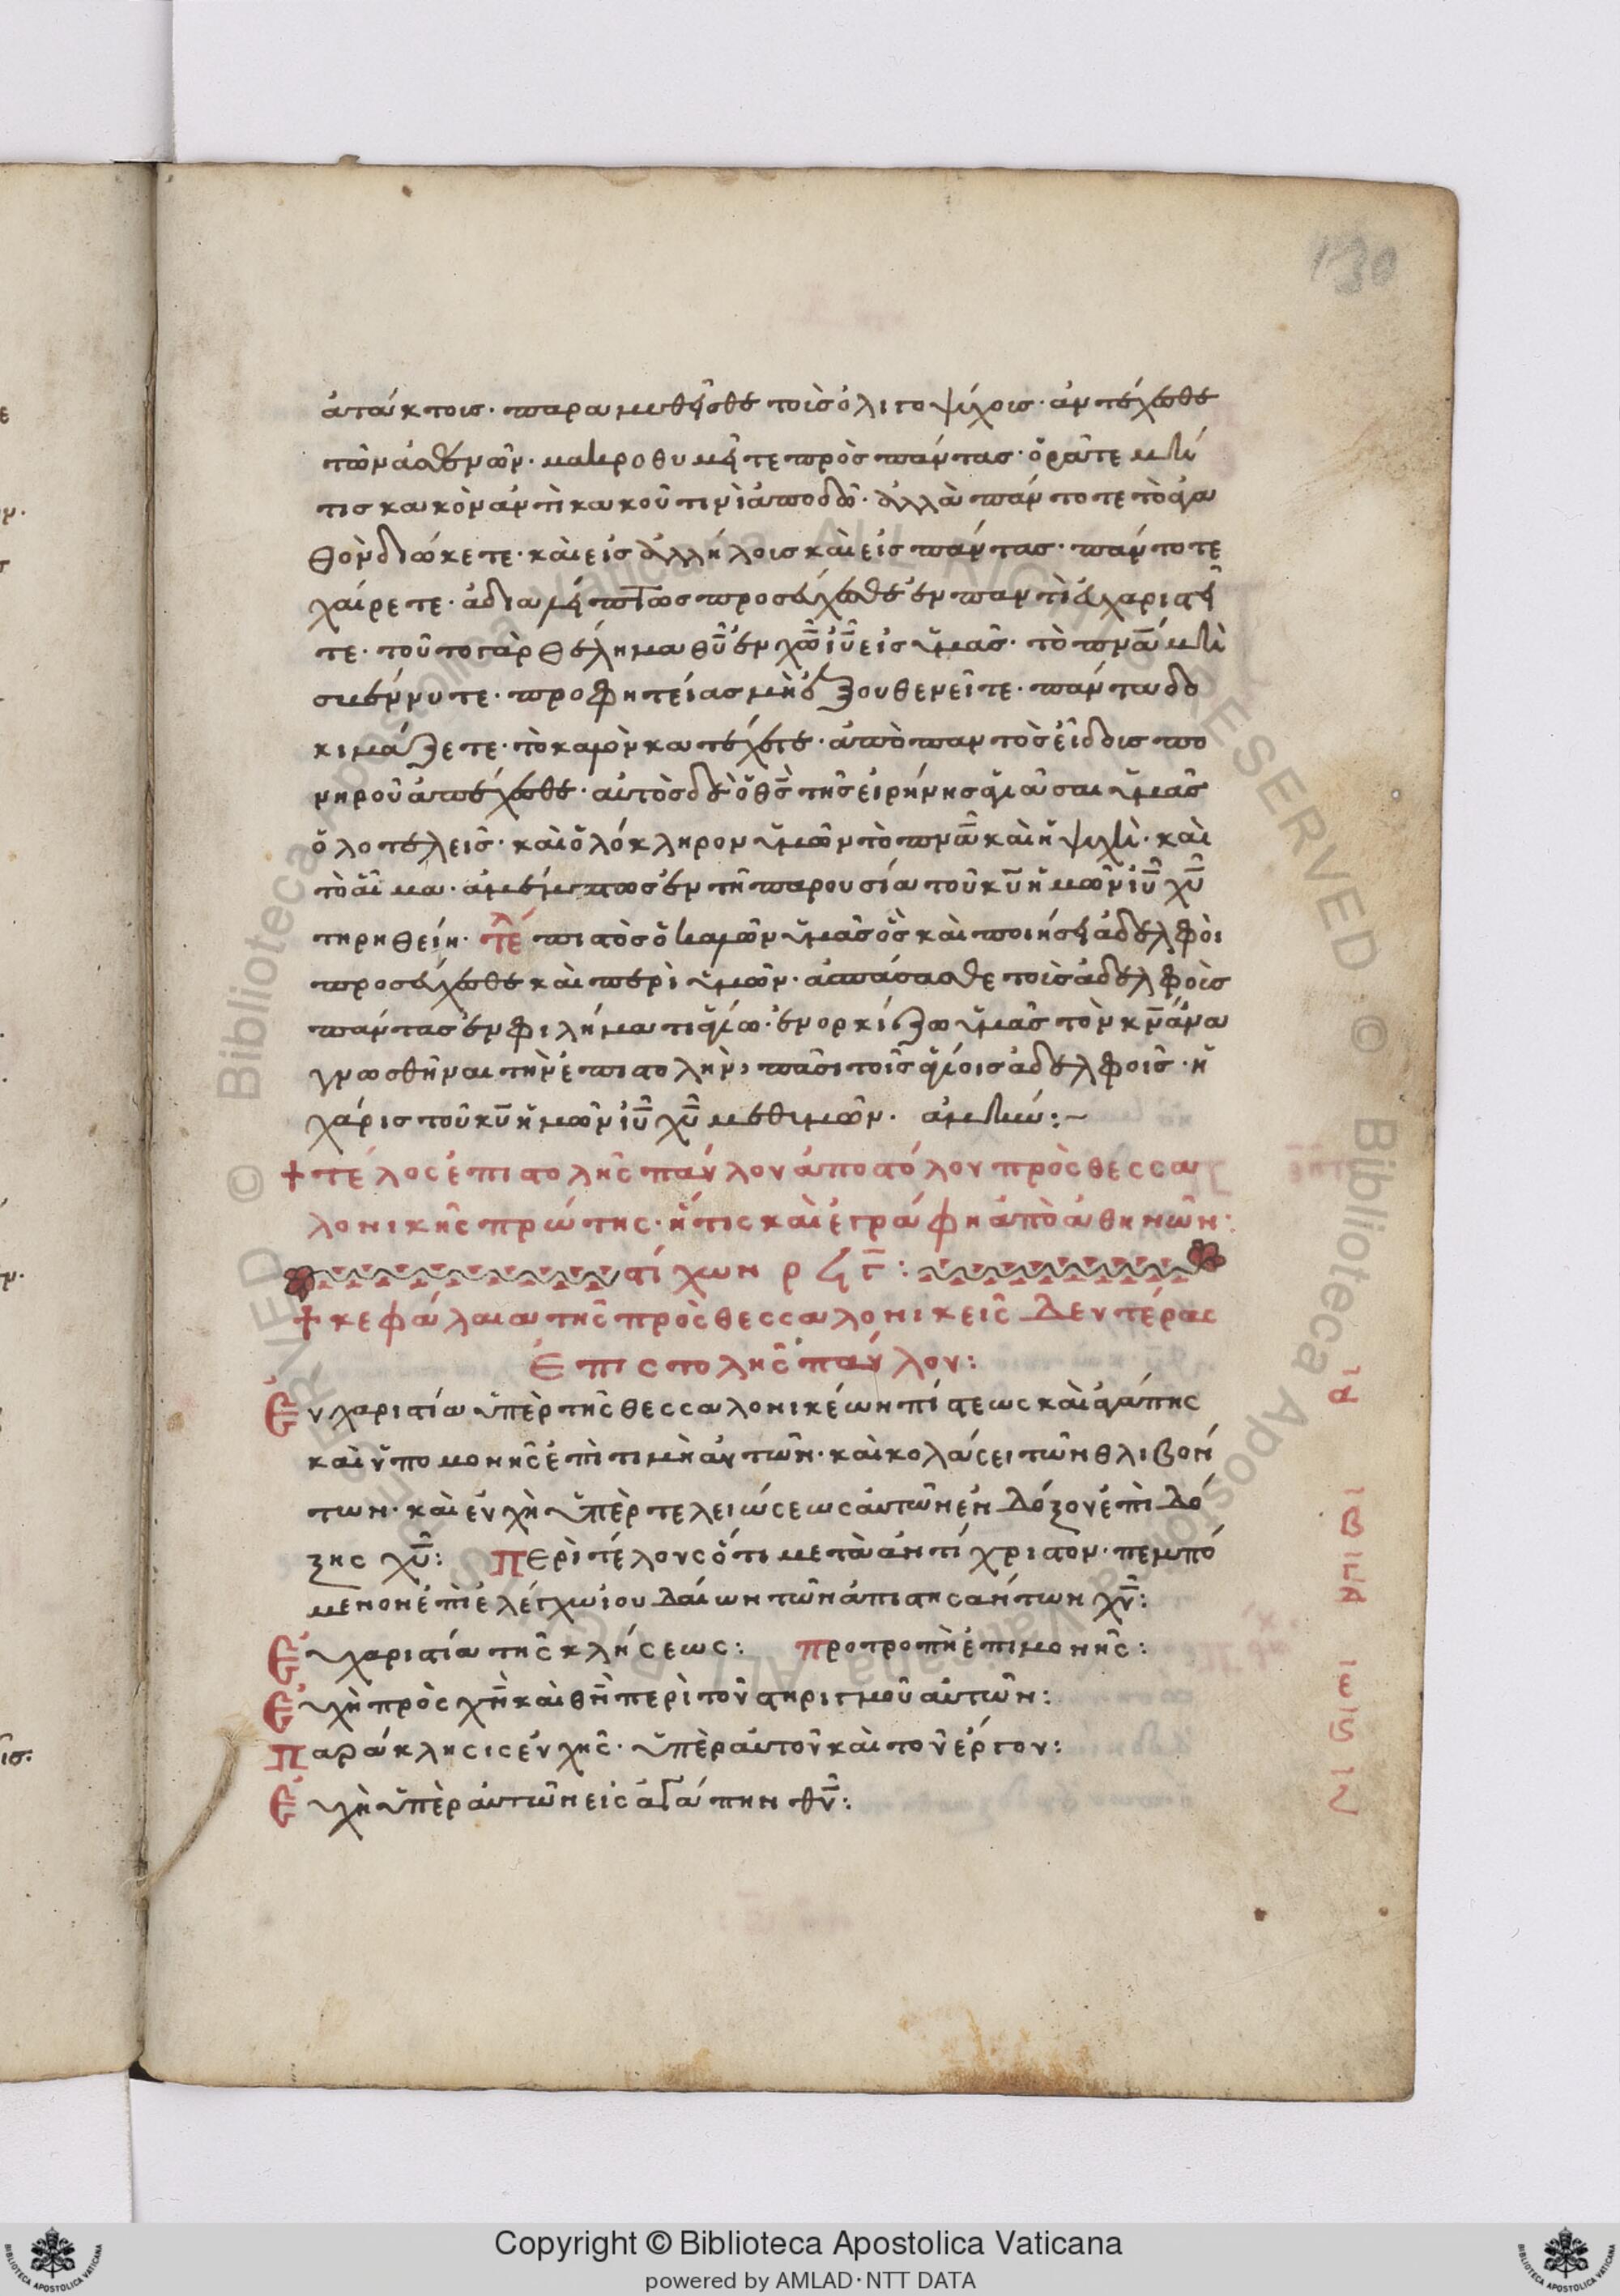 130
ἀτάκτοις· παραμυθῆσθε τοὶς ὀλιγοψύχοις· ἀντέχεσθε
τῶν ἀσθενῶν· μακροθυμῆτε πρὸς πάντας· ὁρᾶτε μή
τις κακὸν ἀντὶ κακοῦ τινὶ ἀποδῶ· ἀλλὰ πάντοτε τὸ ἀγα
θὸν διώκετε· καὶ εἰς ἀλλήλοις καὶ εἰς πάντας· πάντοτε
χαίρετε· ἀδιαλήπτως προσεύχεσθε ἐν παντὶ εὐχαριστῆ
τε· τοῦτο γὰρ θέλημα θῦ ἐν χῶ ἰῦ εἰς ὑμᾶς· τὸ πνᾶ μὴ
σβέννυτε· προφητείας μὴ ἐξουθενεῖτε· πάντα δο
κιμάζετε· τὸ καλὸν κατέχετε· ἀπὸ παντὸς εἴδοις πο
νηροῦ ἀπέχεσθε· αὐτὸς δὲ ὁ θς τῆς εἰρήνης ἁγιάσαι ὑμᾶς
ὁλοτελεῖς· καὶ ὁλόκληρον ὑμῶν τὸ πνᾶ καὶ ἡ ψυχὴ· καὶ
τὸ σῶμα· ἀμέμπτως ἐν τῆ παρουσία τοῦ κυ ἡμῶν ἰῦ χῦ
τηρηθείη· τέ πιστὸς ὁ καλῶν ὑμᾶς ὃς καὶ ποιήσῃ ἀδελφοὶ
προσεύχεσθε καὶ περὶ ὑμῶν· ἀσπάσασθε τοὶς ἀδελφοὶς
πάντας ἐν φιλήματι ἁγίω· ἐνορκίζω ὑμᾶς τὸν κν ἀνα
γνωσθῆναι τὴν ἐπιστολὴν, πᾶσι τοῖς ἁγίοις ἀδελφοῖς· ἡ
χάρις τοῦ κυ ἡμῶν ἰῦ χῦ μεθ ὑμῶν· ἀμήν:~
+ τέλος ἐπιστολῆς παύλου ἀποστόλου πρὸς θεσσα
λονικῆς πρώτης· ἥτις καὶ ἐγράφη ἀπὸ ἀθηνῶν·
στίχων ρϟγ:
+ κεφάλαια τῆς πρὸς θεσσαλονικεῖς δευτέρας
ἐπιστολῆς παύλου:
Εὐχαριστία ὑπὲρ τῆς θεσσαλονικέων πίστεως καὶ ἀγάπης
καὶ ὑπομονῆς ἐπὶ τιμὴ αὐτῶν· καὶ κολάσει τῶν θλιβόν
των· καὶ εὐχὴ ὑπὲρ τελειώσεως αὐτῶν ἐν δόξου ἐπὶ δό
ξης χῦ: Περὶ τέλους ὅτι μετὰ ἀντίχριστον· πεμπό
μενον ἐπὶ ἐλέγχω ἰουδαίων τῶν ἀπιστησάντων χῦ:
Εὐχαριστία τῆς κλήσεως: προτροπὴ ἐπιμονῆς:
Εὐχὴ πρὸς χν καὶ θν περὶ τοῦ στηριγμοῦ αὐτῶν:
Παράκλησις εὐχῆς· ὑπὲρ αὐτοῦ καὶ τοῦ ἔργου:
Εὐχὴ ὑπὲρ αὐτῶν εἰς ἀγάπην θῦ:
Copyright © Biblioteca Apostolica Vaticana
powered by AMLAD·NTT DATA